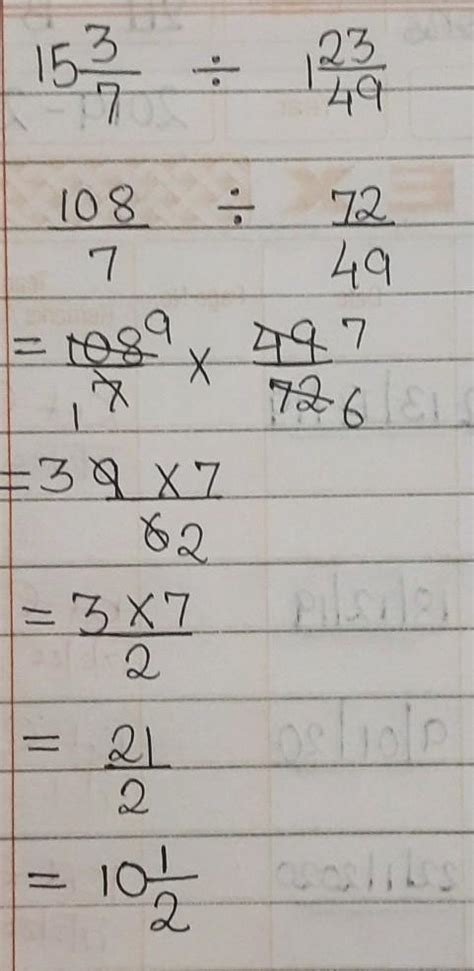 15 3/7 ÷ 1 23/49
108/7 ÷ 72/49
= 108 9/1 7 × 49 7/72 6
= 3 9 × 7/6 2
= 3 × 7/2
= 21/2
= 10 1/2